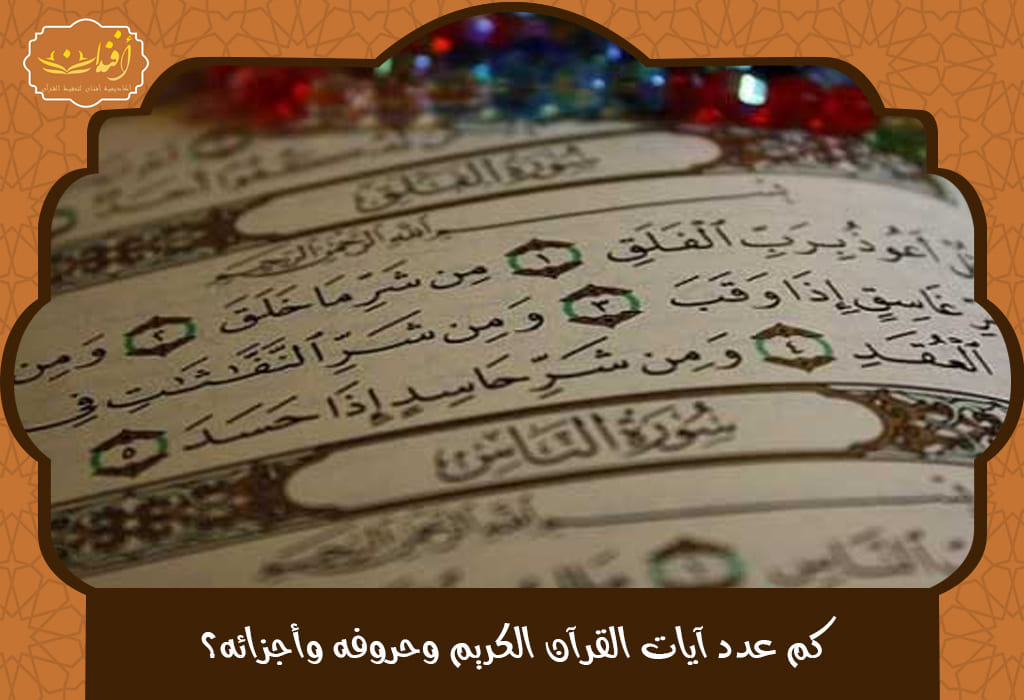 أفنان
أكاديمية أفنان لتحفيظ القرآن
سُورَةُ الفَلَقِ
ٱللَّهِ ٱلرَّحْمَٰنِ ٱلرَّحِيمِ
أَعُوذُ بِرَبِّ ٱلْفَلَقِ ١ مِن شَرِّ مَا خَلَقَ ٢ وَمِن
غَاسِقٍ إِذَا وَقَبَ ٣ وَمِن شَرِّ ٱلنَّفَّٰثَٰتِ فِي
ٱلْعُقَدِ ٤ وَمِن شَرِّ حَاسِدٍ إِذَا حَسَدَ ٥
سُورَةُ النَّاسِ
ٱللَّهِ ٱلرَّحْمَٰنِ ٱلرَّحِيمِ
ٱلنَّاسِ ١
كم عدد آيات القرآن الكريم وحروفه وأجزائه؟